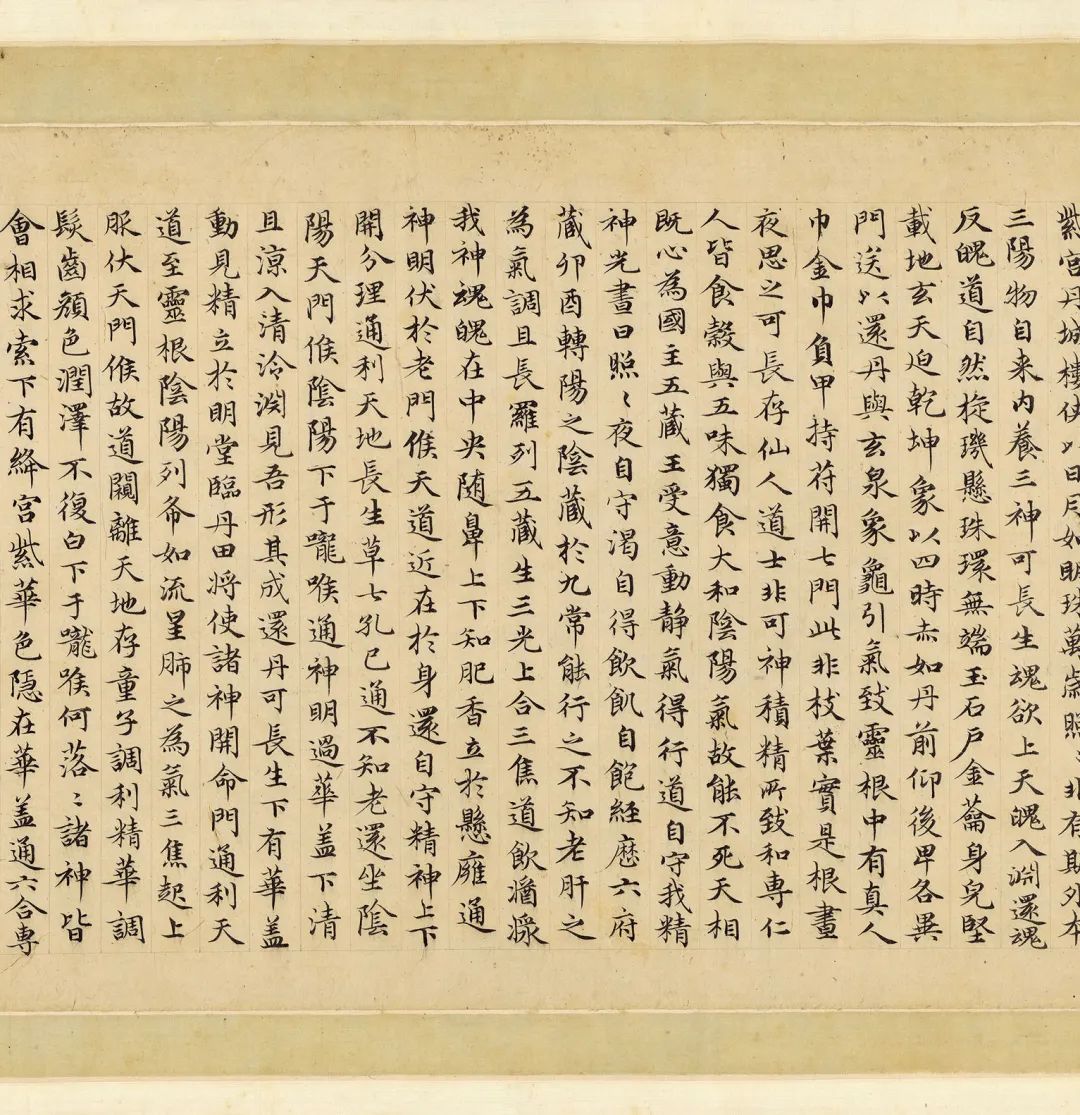 紫宮丹城樓俠以日月如明珠萬歲照〻非有期外本
三陽物自来内養三神可長生魂欲上天魄入淵還魂
反魄道自然㳬璣懸珠環無端玉石戶金籥身皃堅
載地玄天迫乾坤象以四時赤如丹前仰後卑各異
門送以還丹與玄泉象龜引氣致靈根中有真人
巾金巾負甲持苻開七門此非枝葉實是根晝
夜思之可長存仙人道士非可神積精所致和専仁
人皆食穀與五味獨食大和陰陽氣故能不死天相
既心為國主五藏王受意動静氣得行道自守我精
神光晝日照〻夜自守渴自得飲飢自飽経歷六府
藏卯酉轉陽之陰藏於九常能行之不知老肝之
為氣調且長羅列五藏生三光上合三焦道飲漿
我神魂魄在中央随鼻上下知肥香立於懸廱通
神明伏於老門候天道近在於身還自守精神上下
開分理通利天地長生草七孔已通不知老還坐陰
陽天門候陰陽下于嚨喉通神明過華盖下清
且涼入清泠淵見吾形其成還丹可長生下有華盖
動見精立於明堂臨丹田将使諸神開命門通利天
道至靈根陰陽列布如流星肺之為氣三焦起上
服伏天門候故道闚離天地存童子調利精華調
髮齒顔色潤澤不復白下于嚨喉何落〻諸神皆
會相求索下有絳宮紫華色隱在華盖通六合専